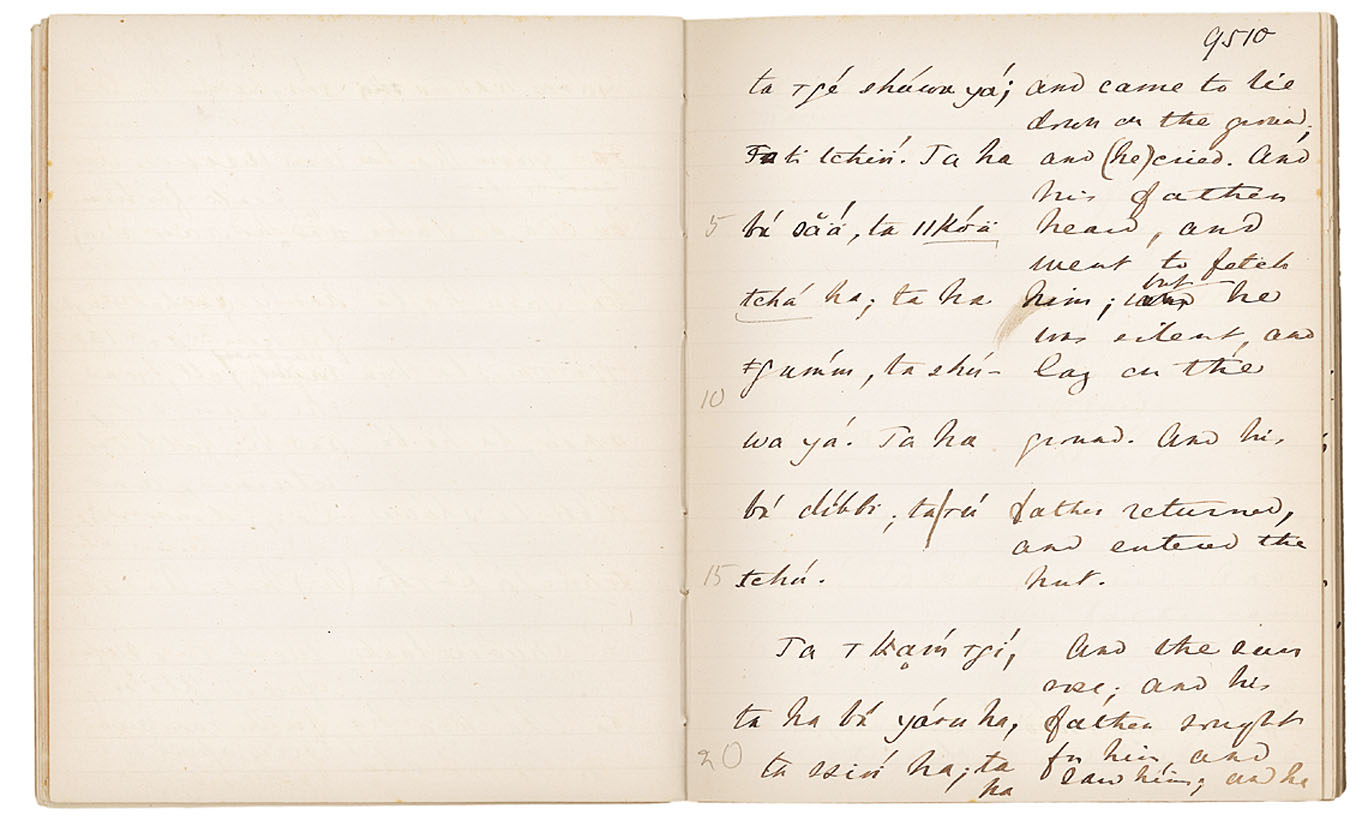 9510
ta ꞇgé shúwa yá; and came to lie
down on the ground;
Ta ti tchiṅ́. Ta ha and (he) cried. And
his father
5 bá sǎá, ta ǁkóä heard, and
went to fetch
tchá ha; ta ha him; but he
was silent, and
ǂgumm, ta shú- lay on the
10
wa yá. Ta ha ground. And his
bá díbbi; ta/rú father returned,
and entered the
15 tchú. hut.
Ta ꞇ ꞇgí, And the sun
rose; and his
ta ha bá yáru ha, father sought
20 ta ha; ta for him, and
ha saw him; and he